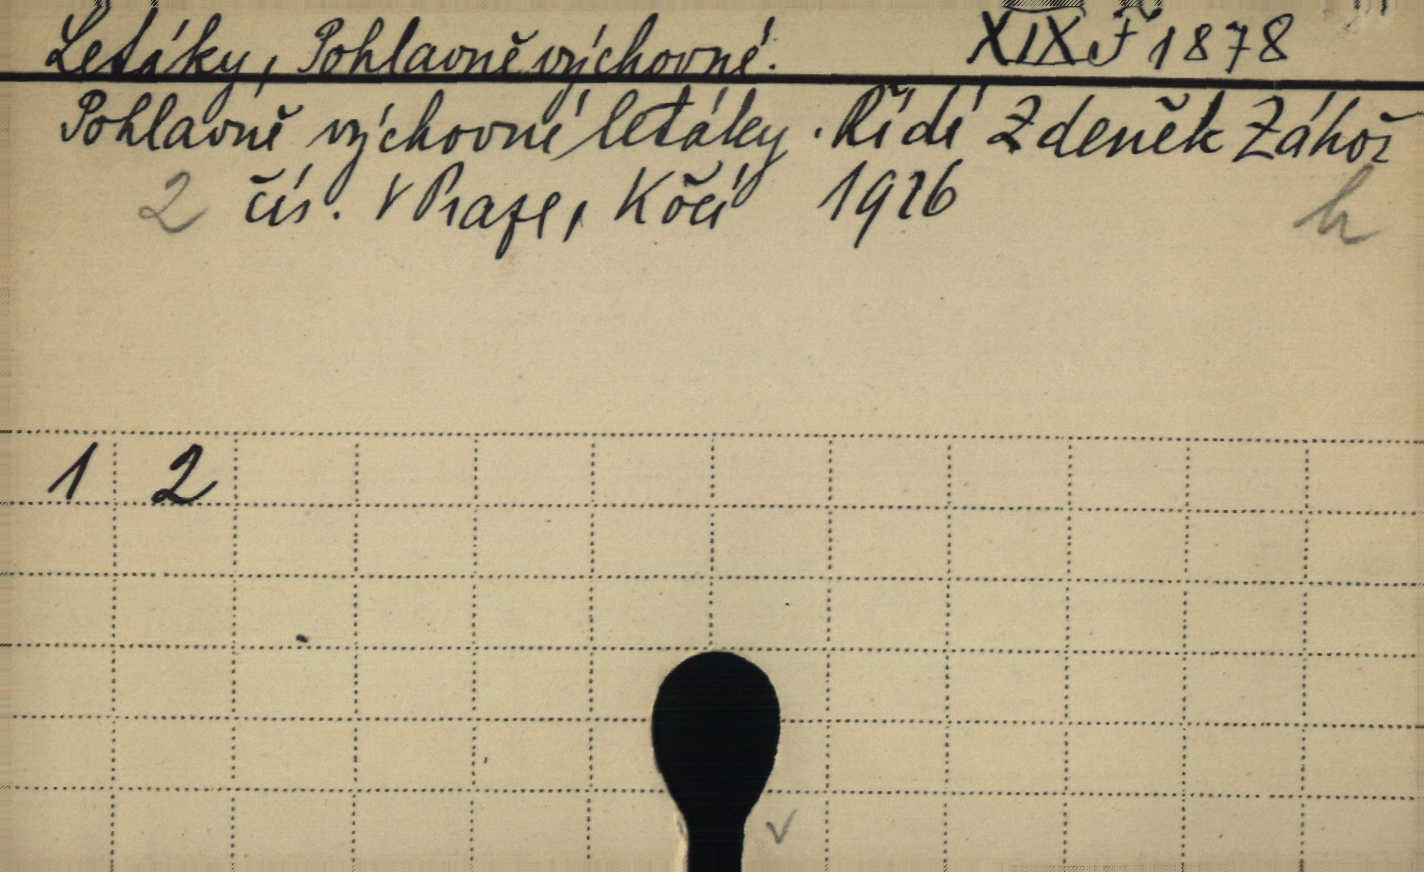 Letáky, Pohlavně výchovné. XIX F 1878
Pohlavně výchovné letáky. Řídí Zdeněk Záhoř
2 čís. V Praze, Kočí 1926
h
1 2